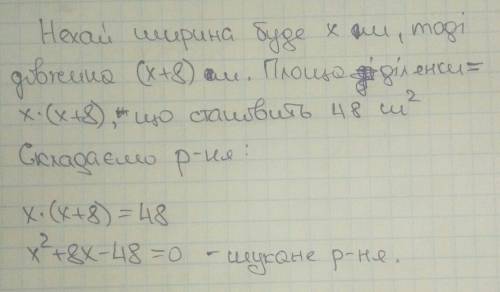 Нехай ширина буде x м, тоді
довжина (x+8) м. Площа ділянки =
x·(x+8), - що становить 48 м²
Складаємо р-ня:
x·(x+8)=48
x²+8x-48=0 - шукане р-ня.